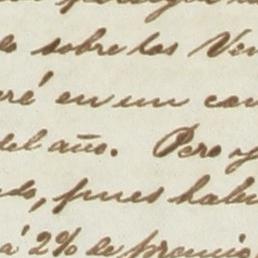 sobre los Ven
ré en un con
del año. Pero y
do, pues habi
á 2% de premio